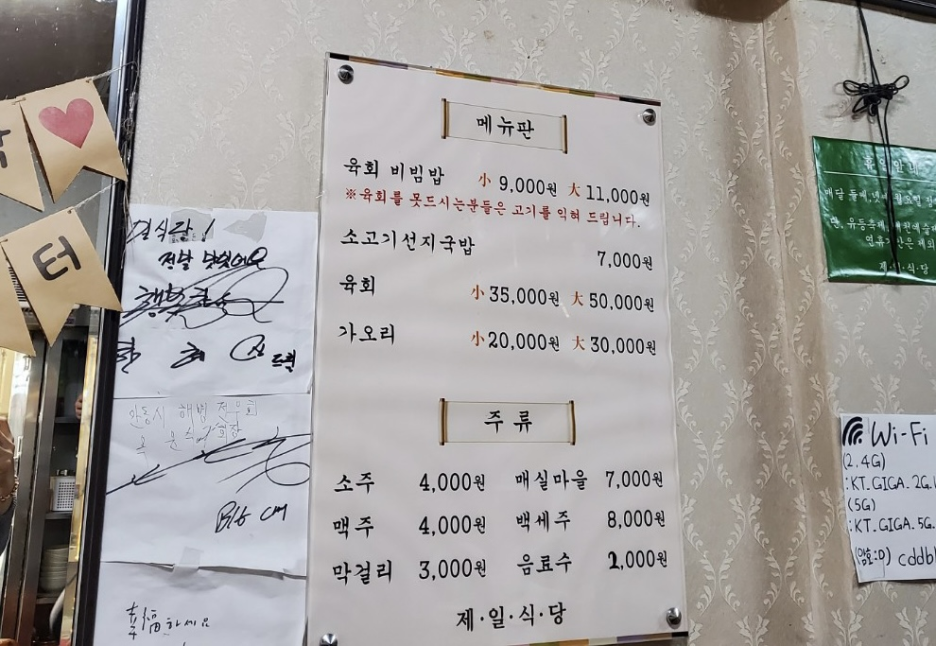 터
면식당!
정말 맛있어요
안동시 해병 전우회
회장
幸福하세요
메뉴판
육회 비빔밥 小 9,000원 大 11,000원
※육회를 못드시는분들은 고기를 익혀 드립니다.
소고기선지국밥 7,000원
육회 小 35,000원 大 50,000원
가오리 小 20,000원 大 30,000원
주 류
소주 4,000원 매실마을 7,000원
맥주 4,000원 백세주 8,000원
막걸리 3,000원 음료수 2,000원
제·일·식·당
매달 둘째,넷
제·일·식·당
Wi-Fi
(2.4G)
:KT.GIGA.2G.
(5G)
:KT.GIGA.5G.